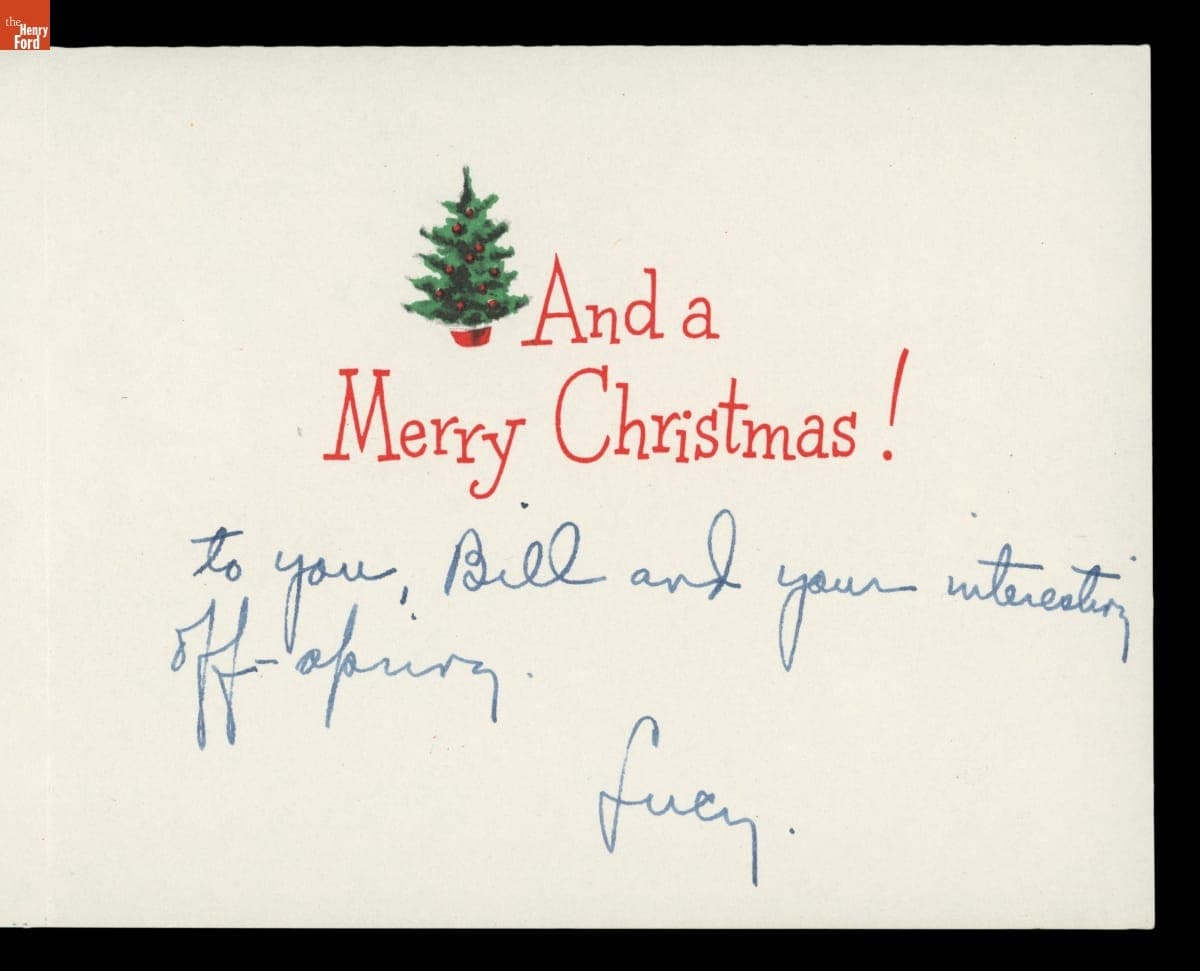 the
Henry
Ford
And a
Merry Christmas!
to you, Bill and your interesting
off-spring.
Lucy.